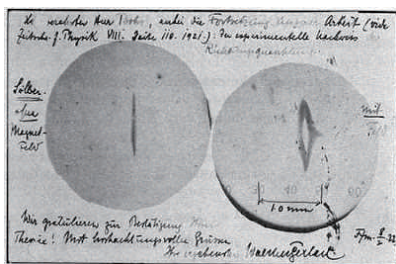 verehrter Herr Bohr, anbei die Fortsetzung unserer Arbeit (vide
Zeitschr. f. Physik VIII. Seite 110. 1921.): Der experimentelle Nachweis
Richtungsquantelung.
Silber
ohne
Magnet-
feld
mit
Feld
0 20 40 60
10 mm
Wir gratulieren zur Bestätigung Ihrer
Theorie! Mit hochachtungsvollen Grüssen
Ihr ergebenster Walther Gerlach
Ffm. 8/2 22